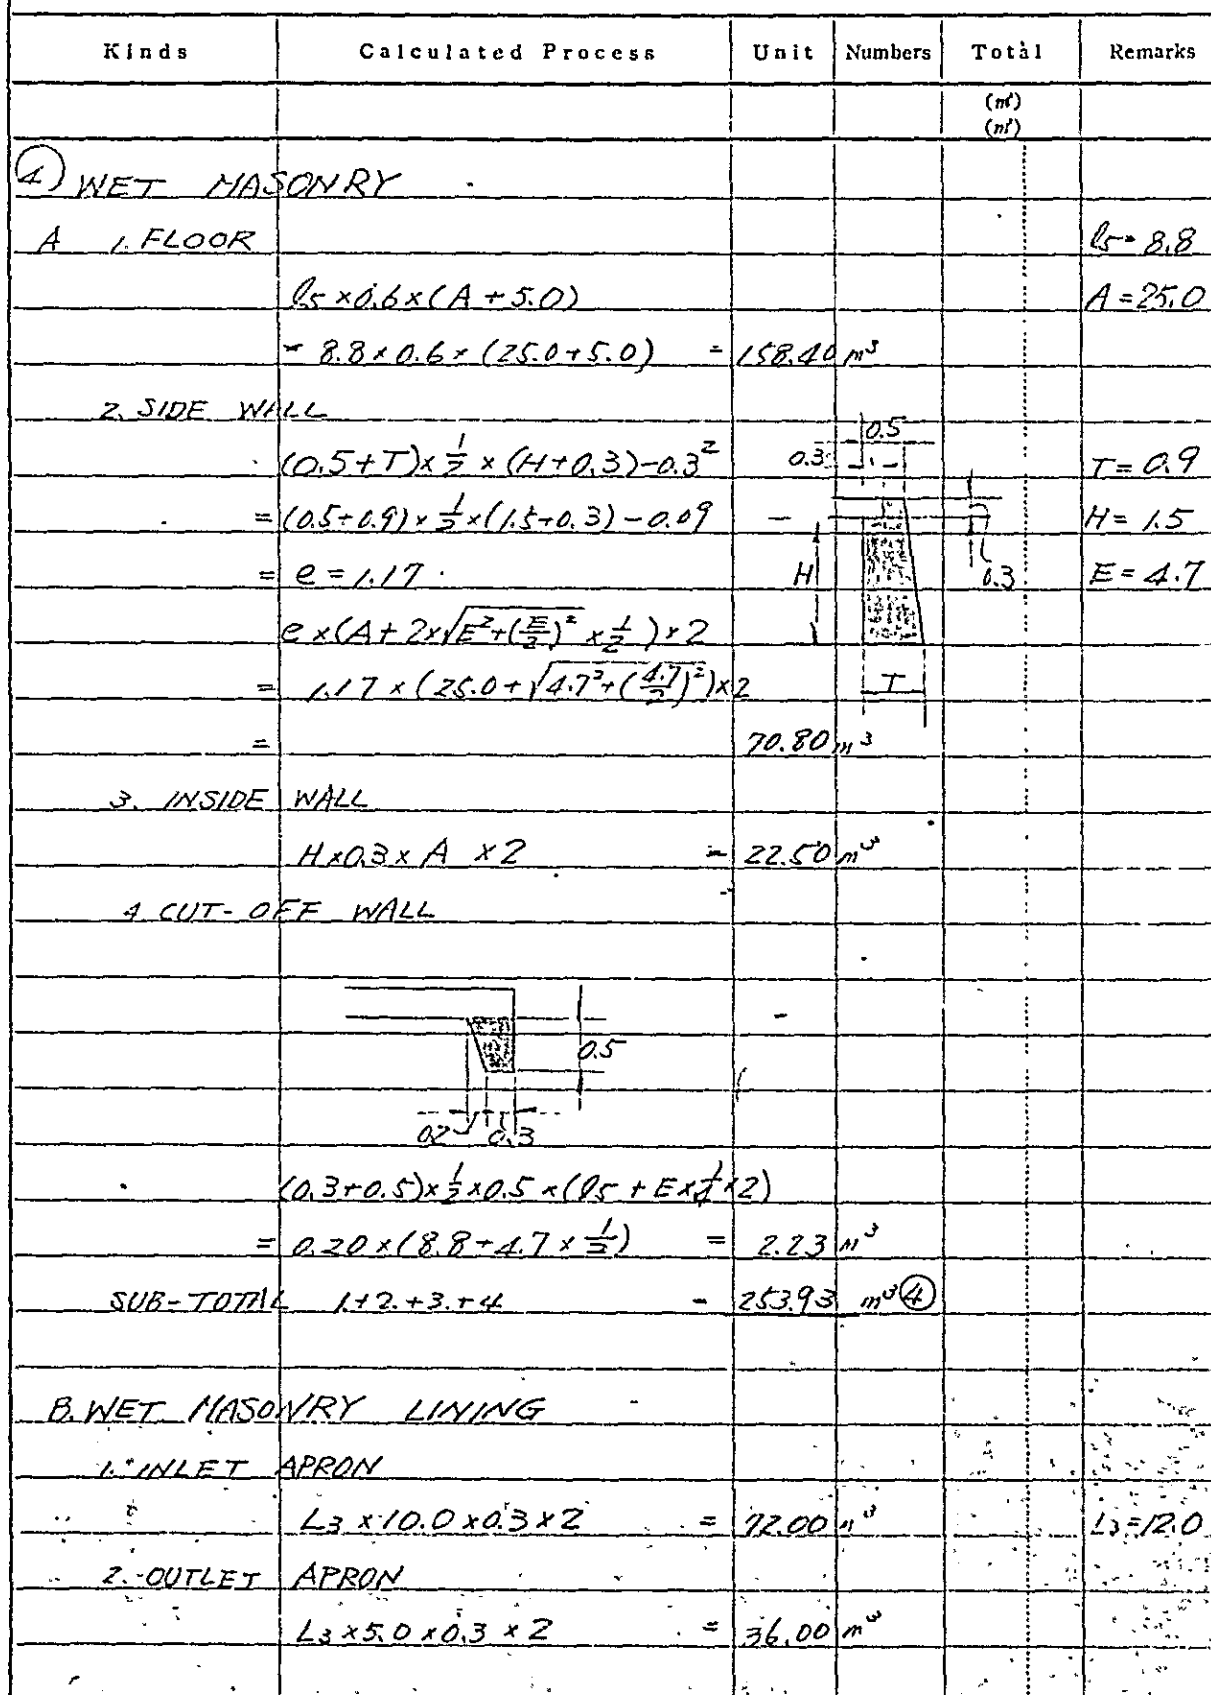 Kinds Calculated Process Unit Numbers Total Remarks
(m³)
(m²)
④ WET MASONRY
A 1. FLOOR l5 = 8.8
l5 × 0.6 × (A + 5.0) A = 25.0
= 8.8 × 0.6 × (25.0 + 5.0) = 158.40 m³
2. SIDE WALL
0.5
(0.5 + T) × 1/2 × (H + 0.3) - 0.3² 0.3 T = 0.9
= (0.5 + 0.9) × 1/2 × (1.5 + 0.3) - 0.09 H = 1.5
= e = 1.17 H 0.3 E = 4.7
e × (A + 2 × √(E² + (E/2)²) × 1/2) × 2
= 1.17 × (25.0 + √(4.7² + (4.7/2)²) × 2 T
= 70.80 m³
3. INSIDE WALL
H × 0.3 × A × 2 = 22.50 m³
4. CUT-OFF WALL
0.5
0.2 0.3
(0.3 + 0.5) × 1/2 × 0.5 × (l5 + E × 1/4 × 2)
= 0.20 × (8.8 + 4.7 × 1/2) = 2.23 m³
SUB-TOTAL 1. + 2. + 3. + 4 = 253.93 m³ ④
B. WET MASONRY LINING
1. INLET APRON
L3 × 10.0 × 0.3 × 2 = 72.00 m³ L3 = 12.0
2. OUTLET APRON
L3 × 5.0 × 0.3 × 2 = 36.00 m³